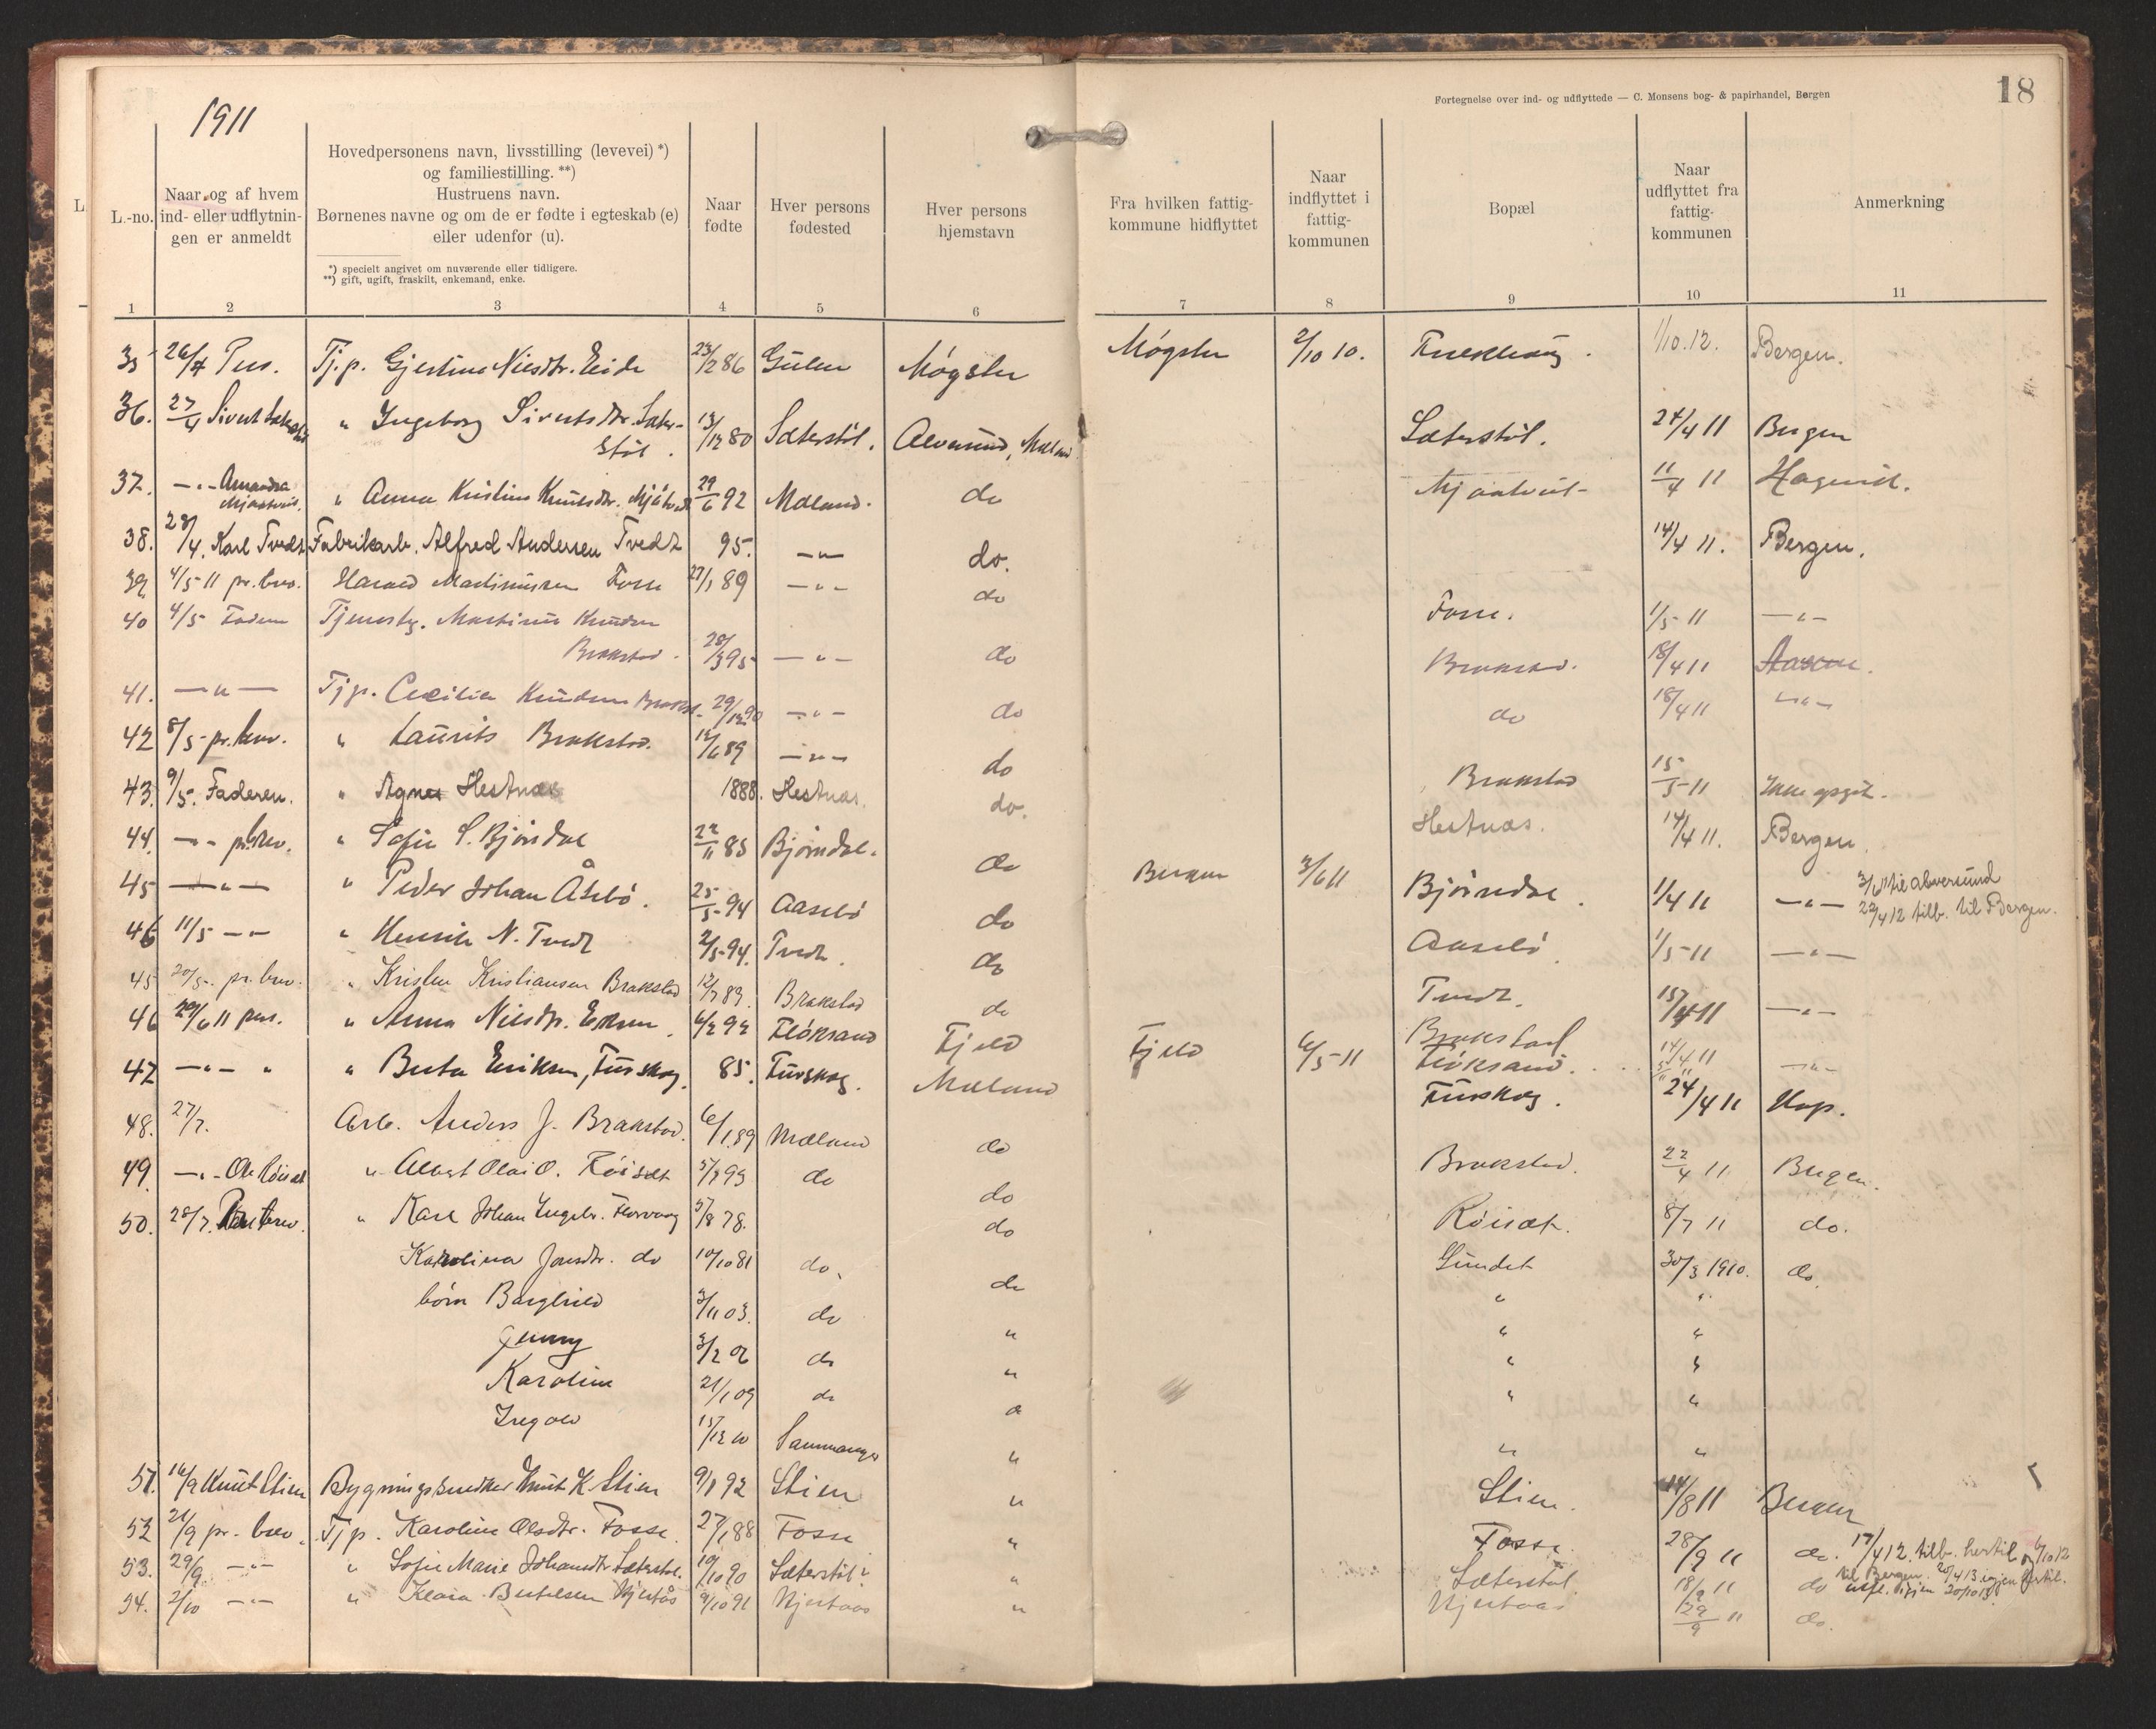 1911
18
Fortegnelse over ind- og udflyttede — C. Monsens bog- & papirhandel, Bergen
L.-no.
Naar og af hvem ind- eller udflytnin- gen er anmeldt
Hovedpersonens navn, livsstilling (levevei) *)
og familiestilling. **)
Hustruens navn.
Børnenes navne og om de er fødte i egteskab (e)
eller udenfor (u).
*) specielt angivet om nuværende eller tidligere.
**) gift, ugift, fraskilt, enkemand, enke.
Naar fødte
Hver persons fødested
Hver persons hjemstavn
Fra hvilken fattig- kommune hidflyttet
Naar indflyttet i fattig- kommunen
Bopæl
Naar udflyttet fra fattig- kommunen
Anmerkning
1 2 3 4 5 6 7 8 9 10 11
35 26/4 Pers. Tj.p. Gjertine Nilsdtr. Eide 23/2 86 Gulen Møgster Møgster 2/10 10. 1/10.12. Bergen.
36. 27/4 Sivert " Ingeborg Sivertsdtr. Sæter-
støl. 13/12 80 Sæterstøl. Alversund, Mæland Sæterstøl. 24/4 11 Bergen
37. -"- Amandra
Mjaatveit. " Anna Kristine Knutsdtr. Mjåtveit 29/6 92 Mæland. do Mjaatveit 11/4 11 Hagevik.
38. 28/4. Karl Tvedt Fabrikarb. Alfred Andersen Tvedt 95. -"- do. 14/4 11. Bergen.
39 4/5 11 pr. brev. Harald Martinussen Fosse 27/1 89 -"- do Fosse. 1/5 11 -"-
40 4/5 Faderen Tjenestg. Martinus Knudsen
Brakstad. 28/3 95 -"- do Brakstad. 18/4 11
41. -"- Tjp. Cecilia Knudsen Brakst. 29/12 90 -"- do do 18/4 11 -"-
42 8/5 pr. brev. " Laurits Brakstad. 12/6 89 -"- do Brakstad 15/5 11 Ikke opgit.
43. 9/5. Faderen. " Agnes Hestnæs 1888. Hestnæs. do. Hestnæs. 14/4 11. Bergen.
44. -"- pr. brev. " Sofie S. Bjørndal 22/11 85 Bjørndal. do Bergen 3/6 11 Bjørndal. 1/4 11 -"- 3/6 11 til Alversund
22/4 12 tilb. til Bergen.
45 -"- " Peder Johan Åsebø. 25/5 94 Aasebø do Aasebø 1/5 11 -"-
46 11/5 -"- " Henrik N. Tvedt 2/5 94. Tvedt. do Tvedt. 15/4 11 -"-
45 20/5. pr. brev. " Kristen Kristiansen Brakstad 12/7 89. Brakstad do Brakstad 14/4 11 -"-
46 29/6 11 pers. " Anna Nilsdtr. 6/2 92 Fløksand Fjeld Fjeld 6/5 11 Fløksand.
47 -"- " " Berta Eriksen, Furskog. 85. Furskog. Mæland Furskog. 24/4 11 Hop.
48. 27/7. Arb. Anders J. Brakstad. 6/1 89 Mæland do Brakstad. 22/4 11 Bergen.
49. -"- Ole Røiset " Albert Olai O. Røiset 5/7 93 do do Røisæt. 8/7 11 do.
50. 28/7. Pr. brev. " Karl Johan Ingebr. Florvaag 5/8 78. do Sundet 30/3 1910. do.
Karolina Jonsdtr. do 10/10 81 do. do " "
børn Bergliod 3/11 03. do " " "
Jenny 3/2 06 do " " "
Karoline 21/1 09 do " " "
Ingolv 15/12 10 Sammanger " " "
51. 16/9 Knut Stien Bygningssnedker Knut K. Stien 9/8 92 Stien " Stien. 14/8 11 Bergen
52 21/9 pr. brev. Tjp. Karoline Olsdtr. Fosse. 27/1 88 Fosse " Fosse. 28/9 11 do. 17/4 12. tilb. hertil og 6/10 12
til Bergen. 25/4 13 igjen hertil.
utfl. igjen 20/10 13.
53. 29/9 -"- " Sofie Marie Johansdtr. Sæterstøl. 10/10 90 Sæterstøl " Sæterstøl. 18/9 11 do
54. 2/10 -"- " Klara Bertelsen Njertås 9/10 91 Njertaas " Njertaas 29/9 11 do.